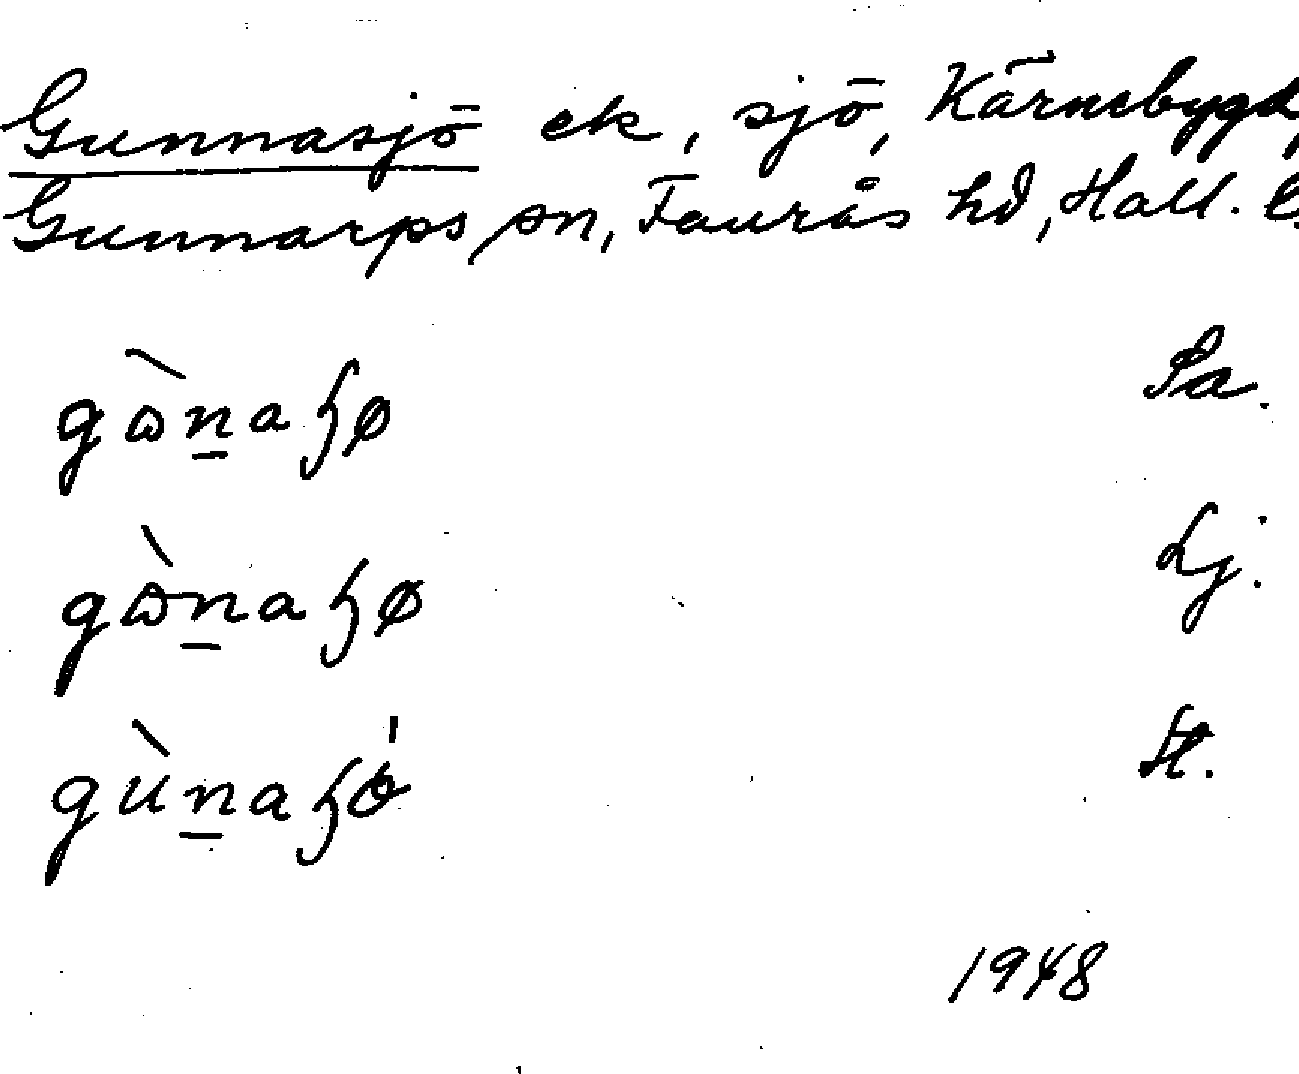 Gunnasjö ek, sjö, Kärnebygd,
Gunnarps sn, Faurås hd, Hall. l.
gɷ̀n̠aɧø Sa.
gɷ̀n̠aɧø Lj.
gùn̠aɧǿ St.
1948